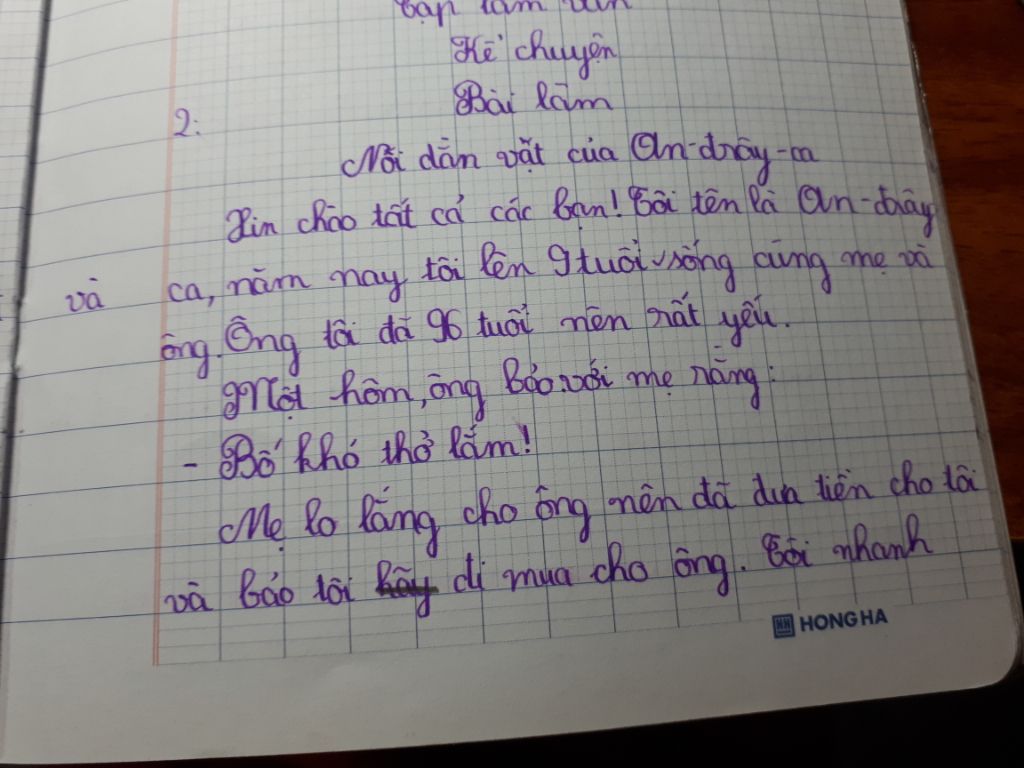 tập làm văn
Kể chuyện
Bài làm
2:
Nỗi dằn vặt của An-đrây-ca
Xin chào tất cả các bạn! Tôi tên là An-đrây
và ca, năm nay tôi lên 9 tuổi sống cùng mẹ và
ông. Ông tôi đã 96 tuổi nên rất yếu.
Một hôm, ông bảo với mẹ rằng:
- Bố khó thở lắm!
Mẹ lo lắng cho ông nên đã đưa tiền cho tôi
và bảo tôi đi mua cho ông. Tôi nhanh
HONG HA